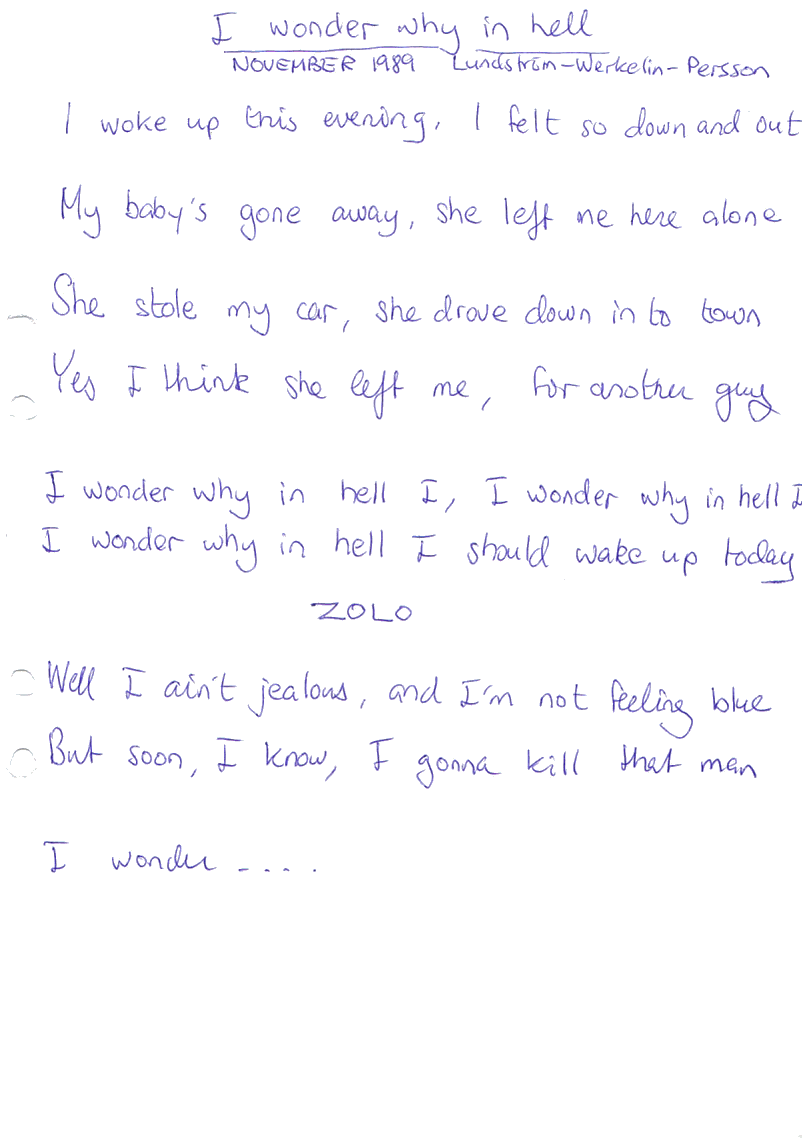 I wonder why in hell
NOVEMBER 1989 Lundström-Werkelin-Persson
I woke up this evening, I felt so down and out
My baby's gone away, she left me here alone
She stole my car, she drove down in to town
Yes I think she left me, for another guy
I wonder why in hell I, I wonder why in hell I
I wonder why in hell I should wake up today
ZOLO
Well I ain't jealous, and I'm not feeling blue
But soon, I know, I gonna kill that man
I wonder .....